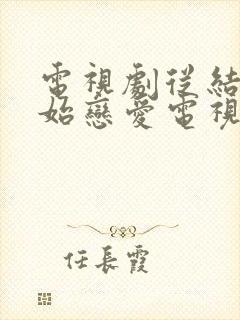 電視劇從結
始戀愛電視
任長霞